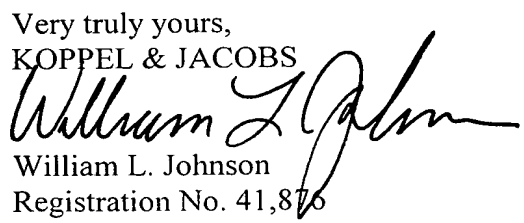 Very truly yours,
KOPPEL & JACOBS
William L Johnson
William L. Johnson
Registration No. 41,876